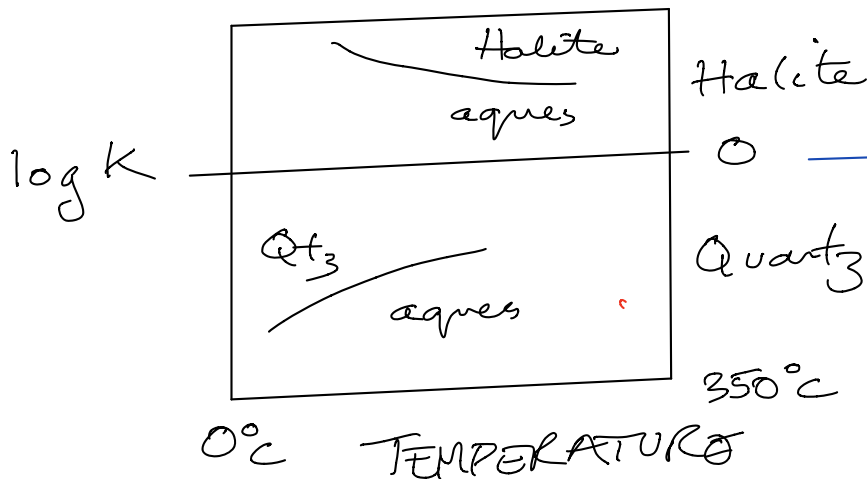 Halite
aques
Halite
log K
0
Qtz
aques
Quartz
350°C
0°C
TEMPERATURE